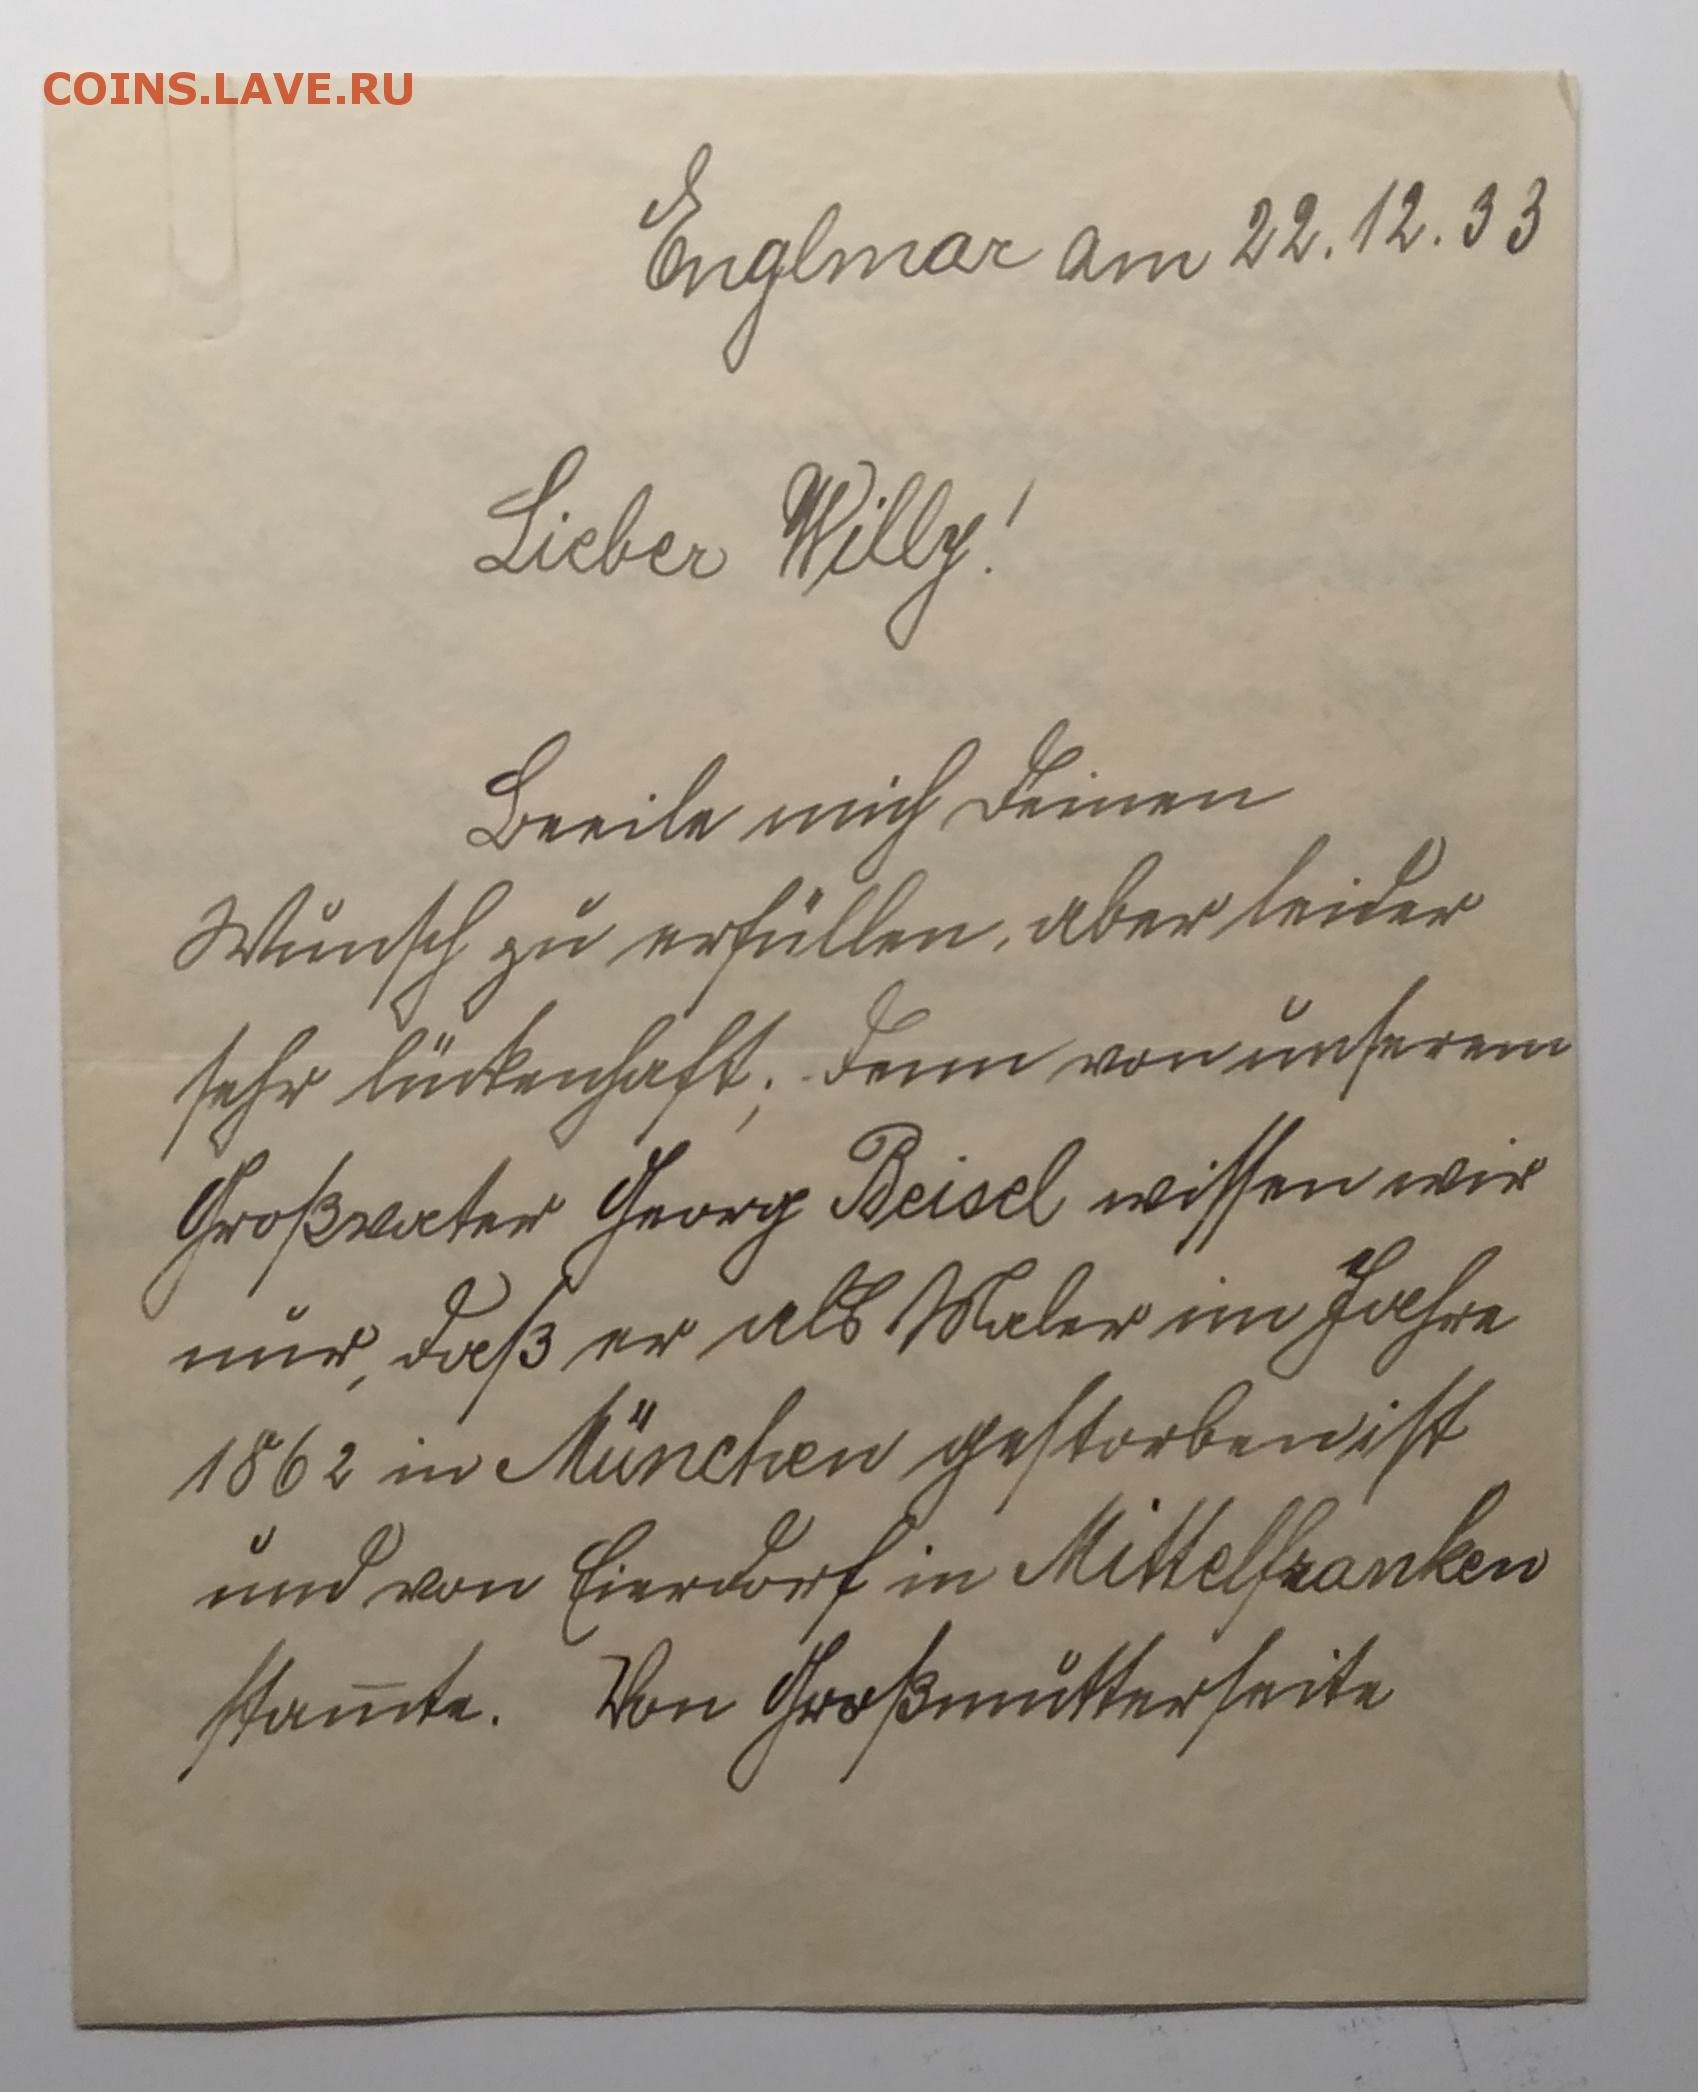 COINS.LAVE.RU
Englmar am 22.12.33
Lieber Willy!
Beeile mich Deinen
Wunsch zu erfüllen, aber leider
sehr lückenhaft; Denn von unserem
Großvater Georg Beisel wissen wir
nur, daß er als Maler im Jahre
1862 in München gestorben ist
und von Eierdorf in Mittelfranken
stam̅te. Von Großmutterseite